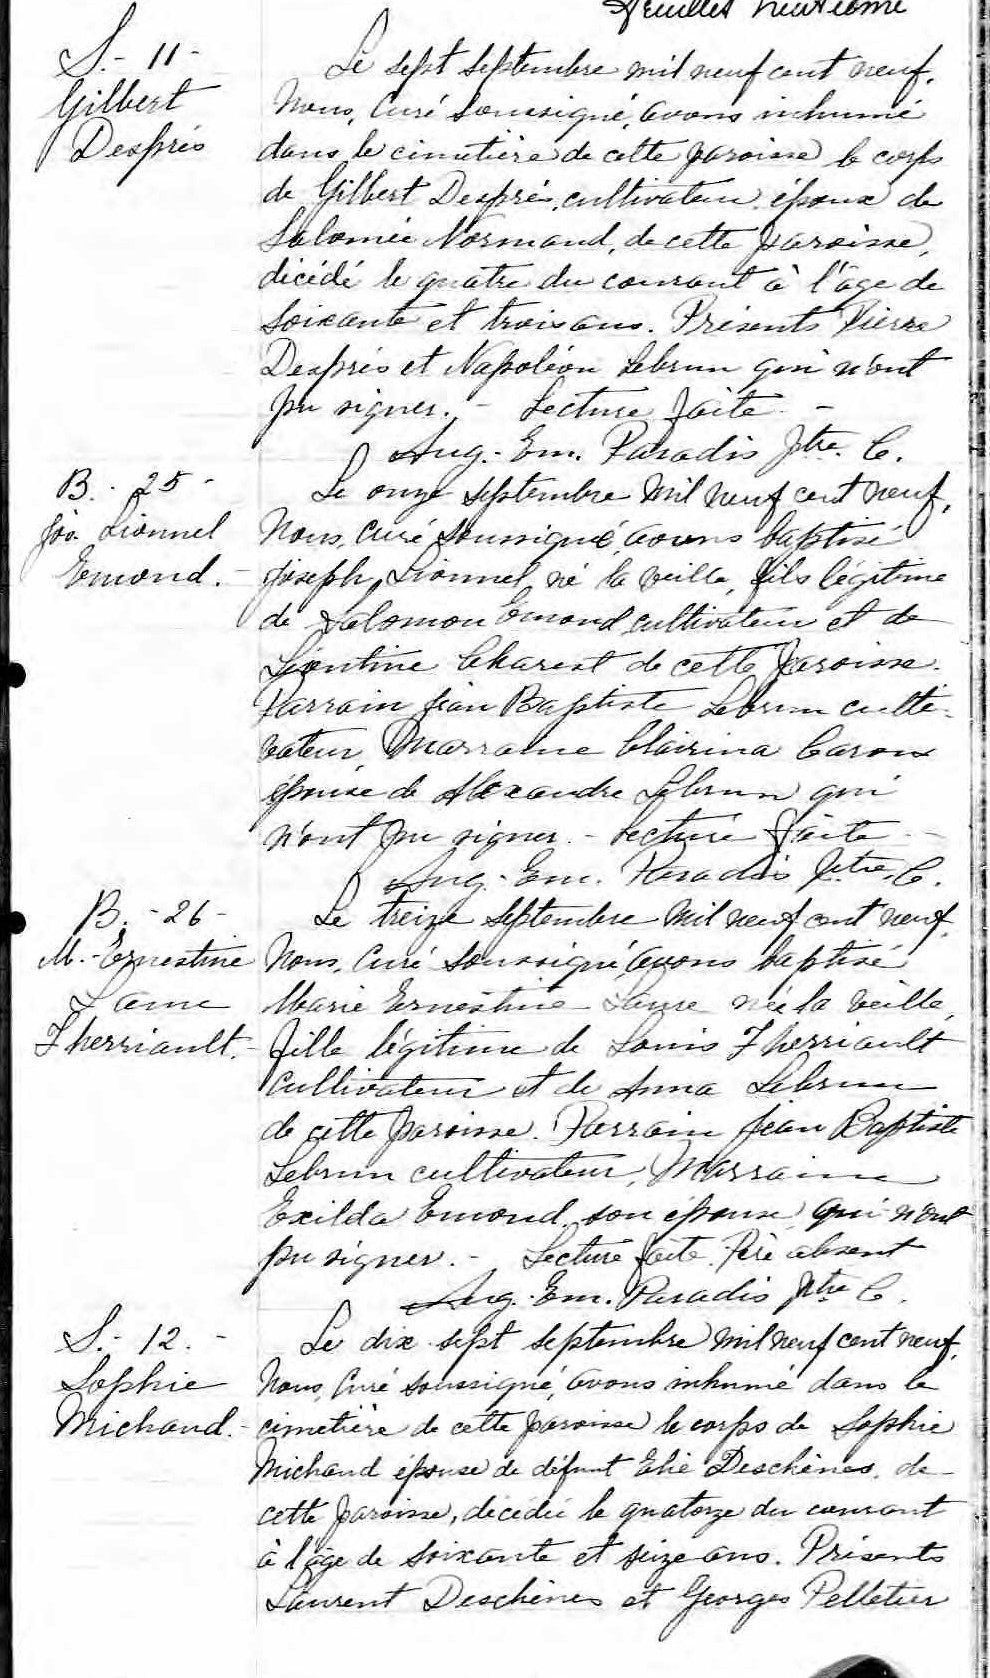 feuillet neuvième
S.- 11 -
Gilbert
Després
Le sept septembre mil neuf cent neuf,
Nous, Curé soussigné, avons inhumé
dans le cimetière de cette paroisse le corps
de Gilbert Després, cultivateur, époux de
Salomée Normand, de cette paroisse,
décédé le quatre du courant à l'âge de
soixante et trois ans. Présents Pierre
Després et Napoléon Lebrun qui n'ont
pu signer. - Lecture faite. -
Aug.- Em. Paradis Ptre C.
B. - 25 -
Jos. Lionnel
Emond. -
Le onze septembre mil neuf cent neuf,
Nous, curé soussigné, avons baptisé
Joseph, Lionnel, né la veille, fils légitime
de Salomon Emond cultivateur et de
Léontine Charest de cette paroisse.
Parrain Jean Baptiste Lebrun culti-
vateur, Marraine Clairina Caron
épouse de Alexandre Lebrun qui
n'ont pu signer. - Lecture faite -
Aug.- Em. Paradis Ptre, C.
B. - 26 -
M.- Ernestine
Laure
Therriault. -
Le treize septembre mil neuf cent neuf,
Nous, Curé soussigné avons baptisé
Marie Ernestine Laure née la veille,
fille légitime de Louis Therriault
cultivateur et de Anna Lebrun
de cette paroisse. Parrain Jean Baptiste
Lebrun cultivateur, Marraine
Exilda Emond, son épouse, qui n'ont
pu signer. - Lecture faite. Père absent
Aug.- Em. Paradis Ptre C.
S.- 12. -
Sophie
Michaud. -
Le dix sept septembre mil neuf cent neuf,
Nous, Curé soussigné, avons inhumé dans le
cimetière de cette paroisse le corps de Sophie
Michaud épouse de défunt Elie Deschènes, de
cette paroisse, décédée le quatorze du courant
à l'âge de soixante et seize ans. Présents
Laurent Deschènes et Georges Pelletier